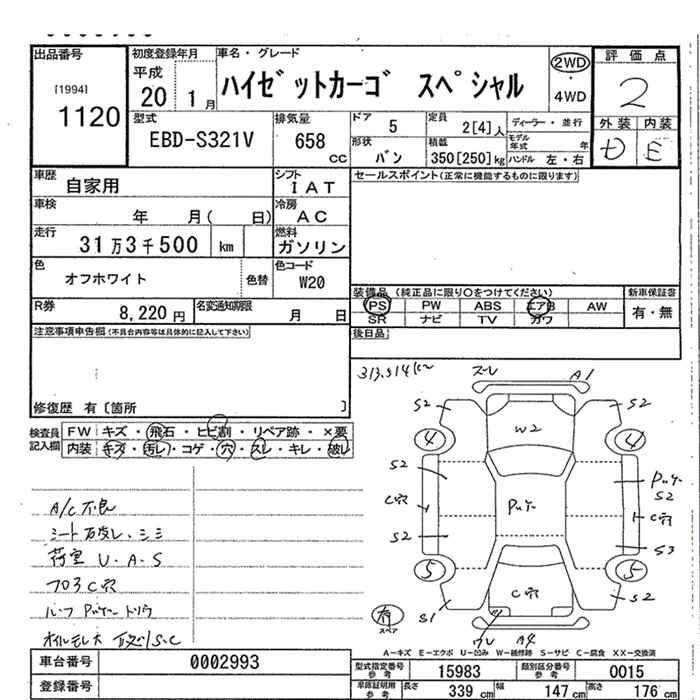 出品番号 初度登録年月 車名・グレード 評価点
[1994] 平成 2WD
1120 20 1月 ハイゼットカーゴ スペシャル ・ 2
4WD
型式 排気量 ドア 定員 ディーラー・並行 外装 内装
EBD-S321V 658 cc 5 2[4]人 モデル年式 年 D E
形状 積載
バン 350[250]kg ハンドル 左・右
車歴 シフト セールスポイント(正常に機能するものに限ります)
自家用 IAT
車検 年 月( 日) 冷房 AC
走行 31万3千500 km 燃料 ガソリン
色 オフホワイト 色替 色コード W20
装備品(純正品に限り○をつけてください) 新車保証書
R券 8,220円 名変通知期限 月 日 PS PW ABS エアB AW 有・無
SR ナビ TV カワ
注意事項申告欄(不具合内容等は具体的に記入して下さい) 後日品
修復歴 有[箇所 ]
検査員記入欄 FW キズ・飛石・ヒビ割・リペア跡・×要
内装 キズ・汚レ・コゲ・穴・スレ・キレ・破レ
313,514k~
スレ A1
S2 S2
W2
4 4
S2
C穴 Pハゲ Pハゲ
S2
C穴
S2 S3
5 5
C穴 S2
S1
有
スペア
A4
A/C不良
シート破レ、シミ
荷室 U・A・S
フロアC穴
ルーフ Pハゲ
オイルモレ大 下廻りS.C
A-キズ E-エクボ U-凹み W-補修跡 S-サビ C-腐食 XX-交換済
車台番号 0002993 型式指定番号参考 15983 類別区分番号参考 0015
登録番号 車庫証明用参考 長さ 339 cm 幅 147 cm 高さ 176 cm